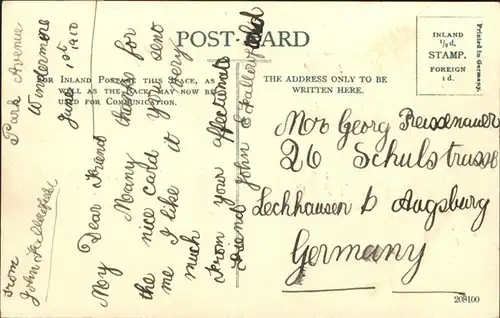 POST-CARD
FOR INLAND POSTAGE THIS SPACE, AS
WELL AS THE BACK, MAY NOW BE
USED FOR COMMUNICATION.
THE ADDRESS ONLY TO BE
WRITTEN HERE.
INLAND
½d.
STAMP.
FOREIGN
1d.
Printed in Germany.
Park Avenue
Windermere
June 1st 1910
My Dear Friend
Many thanks for
the nice card you sent
me I like it very
much
From your affectionate
Friend John
From
John
Mr Georg Preissenauer
26 Schulstrasse
Lechhausen b Augsburg
Germany
208100